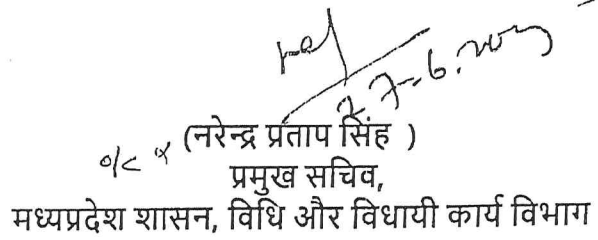 (नरेन्द्र प्रताप सिंह )
प्रमुख सचिव,
मध्यप्रदेश शासन, विधि और विधायी कार्य विभाग